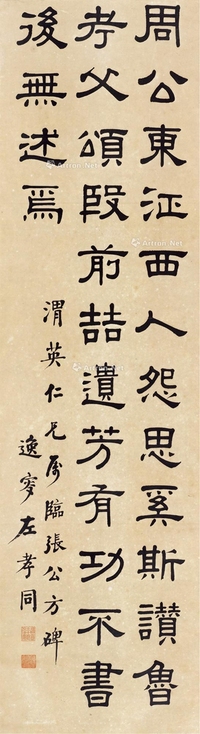 周公東江西人怨思奚斯讃魯
孝父頌段前喆遺芳有功不書
後無述焉
渭英仁兄屬臨張公方碑
逸叟左孝同